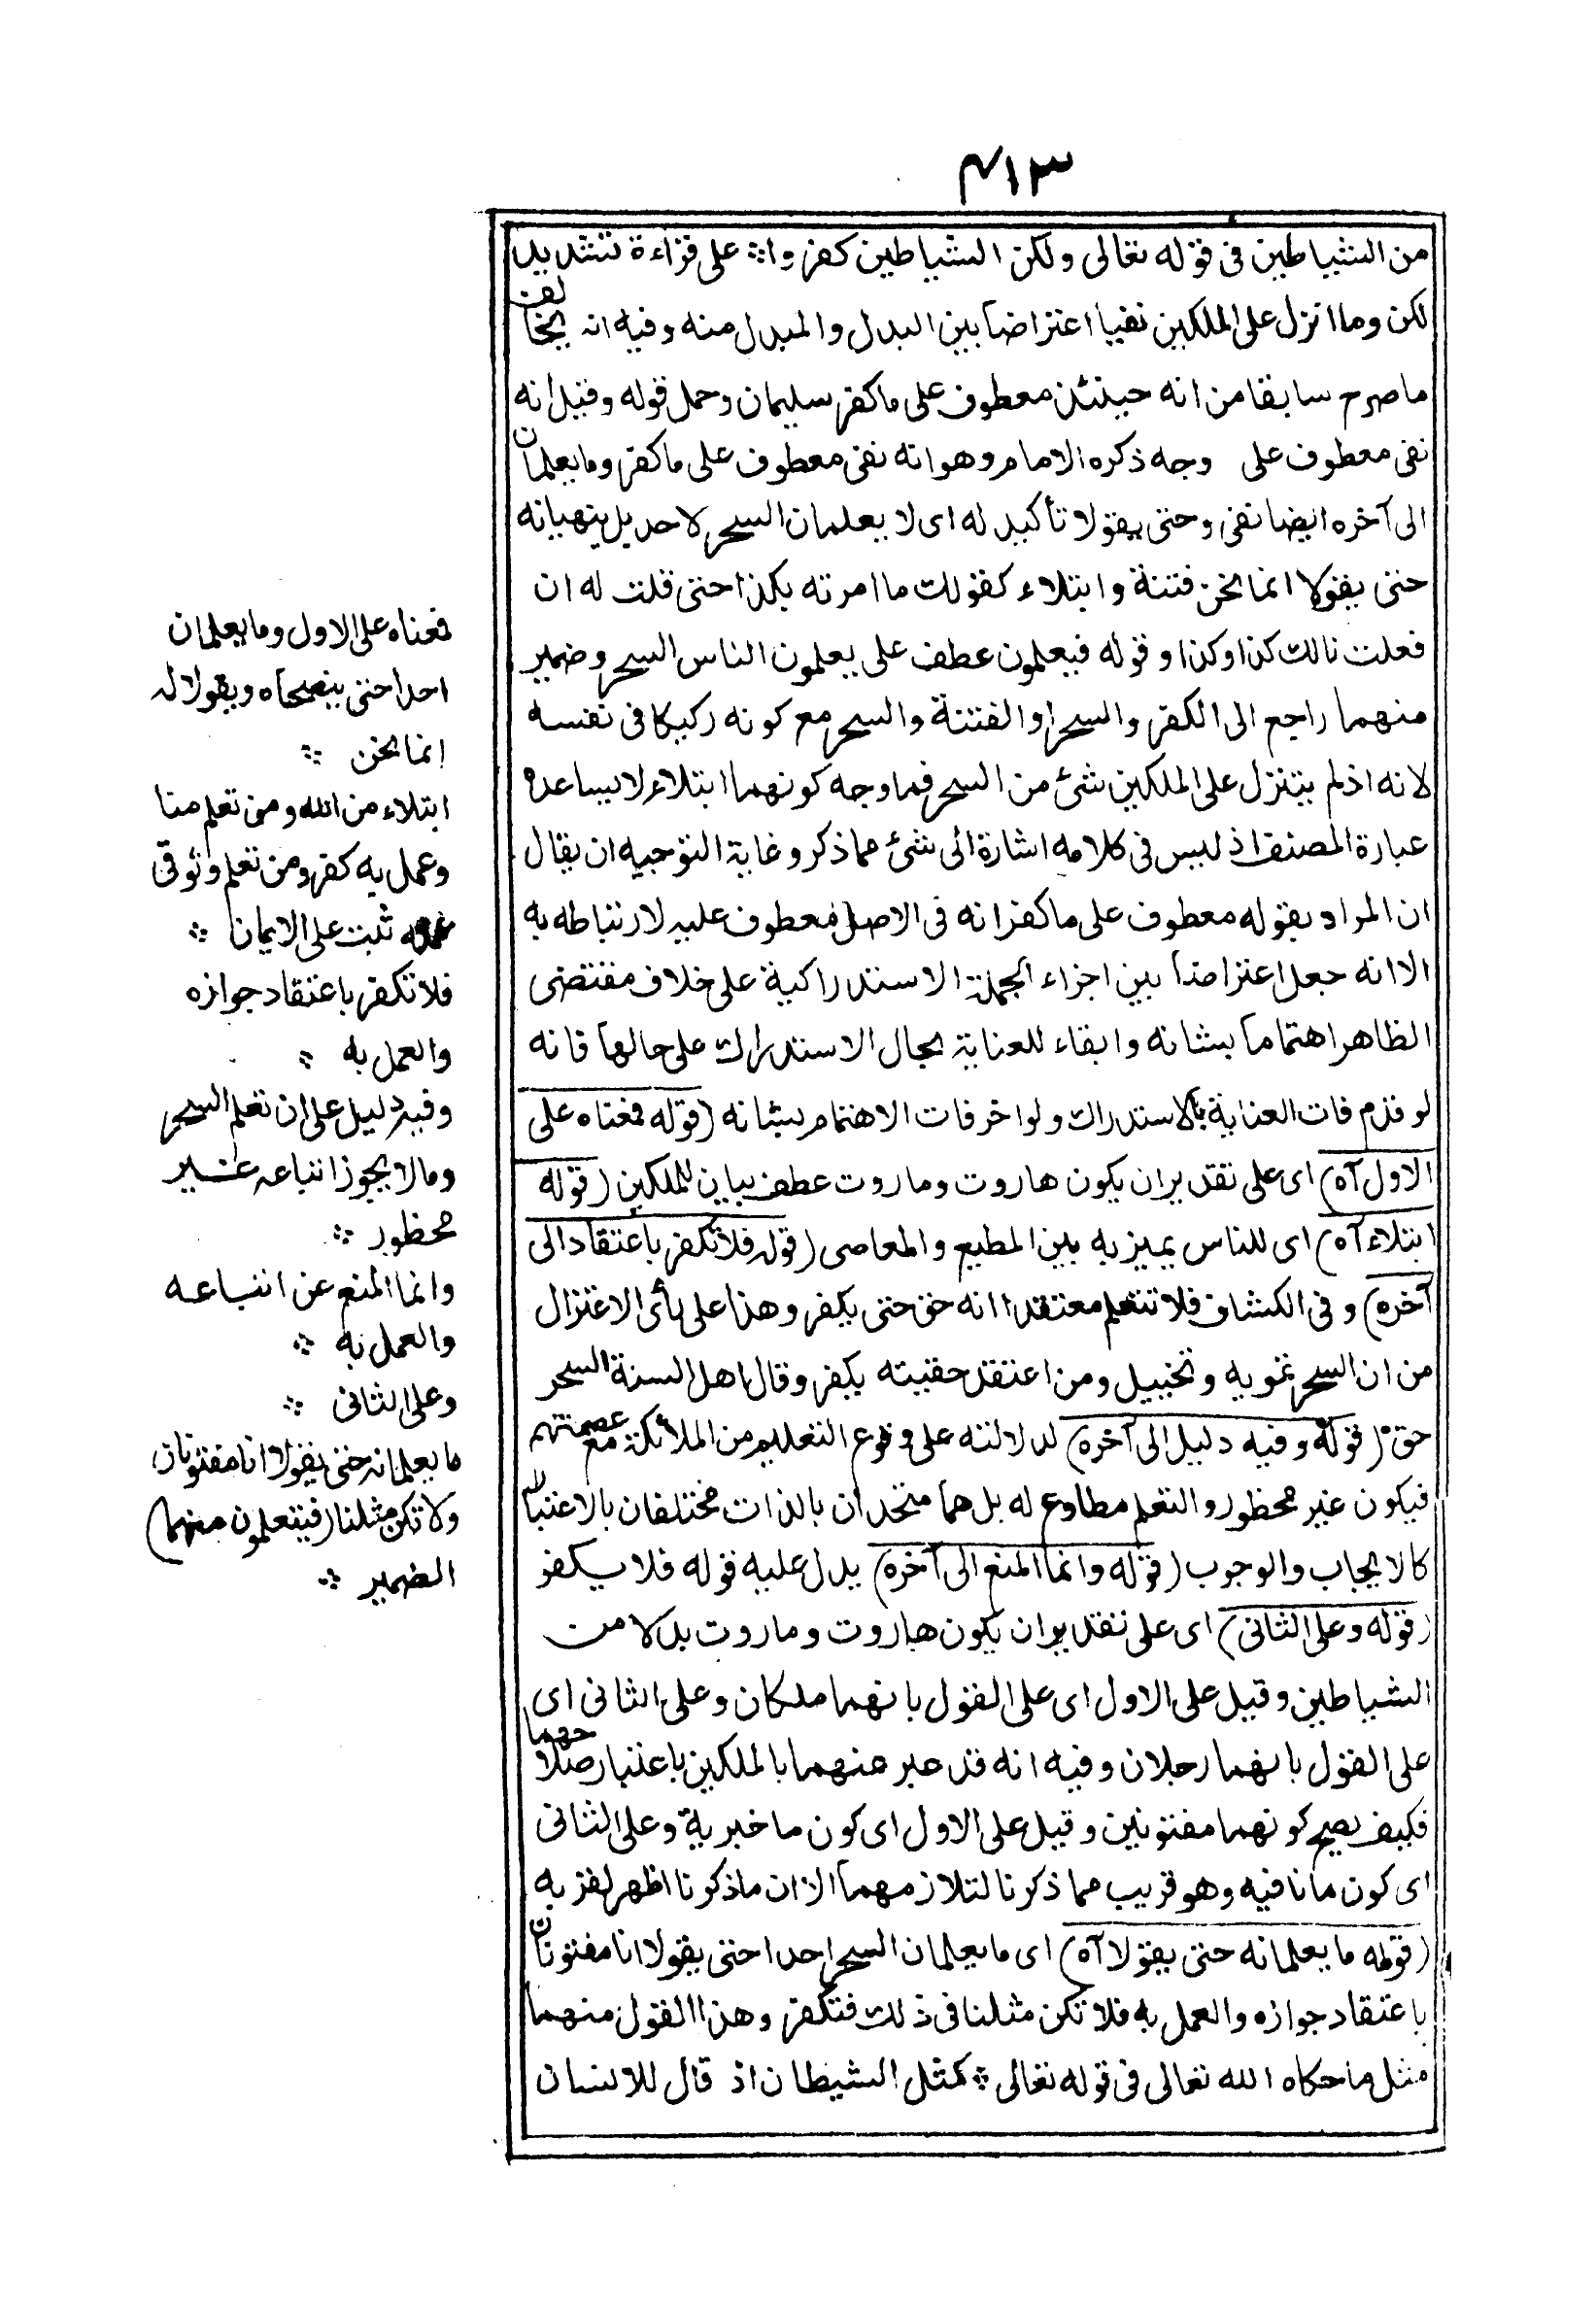 ٤١٣
من الشياطين فى قوله تعالى ولكن الشياطين كفروا * على قراءة تشديد
لكن وما انزل على الملكين نفيا اعتراضا بين البدل والمبدل منه وفيه انه يخالف
ما صرح سابقا من انه حينئذ معطوف على ما كفر سليمان وحمل قوله وقيل انه
نفى معطوف على وجه ذكره الامام وهو انه نفى معطوف على ما كفر وما يعلمان
الى آخره ايضا نفى وحتى يقولا تأكيد له اى لا يعلمان السحر لاحد بل ينهيانه
حتى يقولا انما نحن فتنة وابتلاء كقولك ما امرته بكذا حتى قلت له ان
فعلت نالك كذا وكذا وقوله فيعلمون عطف على يعلمون الناس السحر وضمير
منهما راجع الى الكفر والسحر او الفتنة والسحر مع كونه ركيكا فى نفسه
لانه اذ لم يتنزل على الملكين شئ من السحر فما وجه كونهما ابتلاء لا يساعده
عبارة المصنف اذ ليس فى كلامه اشارة الى شئ مما ذكر وغاية التوجيه ان يقال
ان المراد بقوله معطوف على ما كفر انه فى الاصل معطوف عليه لارتباطه به
الا انه جعل اعتراضا بين اجزاء الجملة الاستدراكية على خلاف مقتضى
الظاهر اهتماما بشانه وابقاء للعناية بحال الاستدراك على حالها فانه
لو قدم فات العناية بالاستدراك ولو اخر فات الاهتمام بشانه (قوله فمعناه على
الاول آه) اى على تقدير ان يكون هاروت وماروت عطف بيان للملكين (قوله
ابتلاء آه) اى للناس يميز به بين المطيع والمعاصى (قوله فلا تكفر باعتقاد الى
آخره) وفى الكشاف فلا تتعلم معتقدا انه حق حتى يكفر وهذا على رأى الاعتزال
من ان السحر تمويه وتخييل ومن اعتقد حقيته يكفر وقال اهل السنة السحر
حق (قوله وفيه دليل الى آخره) لدلالته على وقوع التعليم من الملائكة مع عصمتهم
فيكون غير محظور والتعلم مطاوع له بل هما متحدان بالذات مختلفان بالاعتبار
كالايجاب والوجوب (قوله وانما المنع الى آخره) يدل عليه قوله فلا يكفر
(قوله وعلى الثانى) اى على تقدير ان يكون هاروت وماروت بدلا من
الشياطين وقيل على الاول اى على القول بانهما ملكان وعلى الثانى اى
على القول بانهما رجلان وفيه انه قد عبر عنهما بالملكين باعتبار صلاحهما
فكيف يصح كونهما مفتونين وقيل على الاول اى كون ما خبرية وعلى الثانى
اى كون ما نافيه وهو قريب مما ذكرنا لتلازمهما الا ان ما ذكرنا اظهر لفز به
(قوله ما يعلمانه حتى يقولا آه) اى ما يعلمان السحر احدا حتى يقولا انا مفتونان
باعتقاد جوازه والعمل به فلا تكن مثلنا فى ذلك فتكفر وهذا القول منهما
مثل ما حكاه الله تعالى فى قوله تعالى * كمثل الشيطان اذ قال للانسان
فمعناه على الاول وما يعلمان
احدا حتى ينصحاه ويقولا له
انما نحن *
ابتلاء من الله ومن تعلم منا
وعمل به كفر ومن تعلم وتوقى
عمله ثبت على الايمان *
فلا تكفر باعتقاد جوازه
والعمل به *
وفيه دليل على ان تعلم السحر
وما لا يجوز اتباعه غير
محظور *
وانما المنع عن اتباعه
والعمل به *
وعلى الثانى *
ما يعلمانه حتى يقولا انا مفتونان
ولا تكن مثلنا (فيتعلمون منهما)
الضمير *